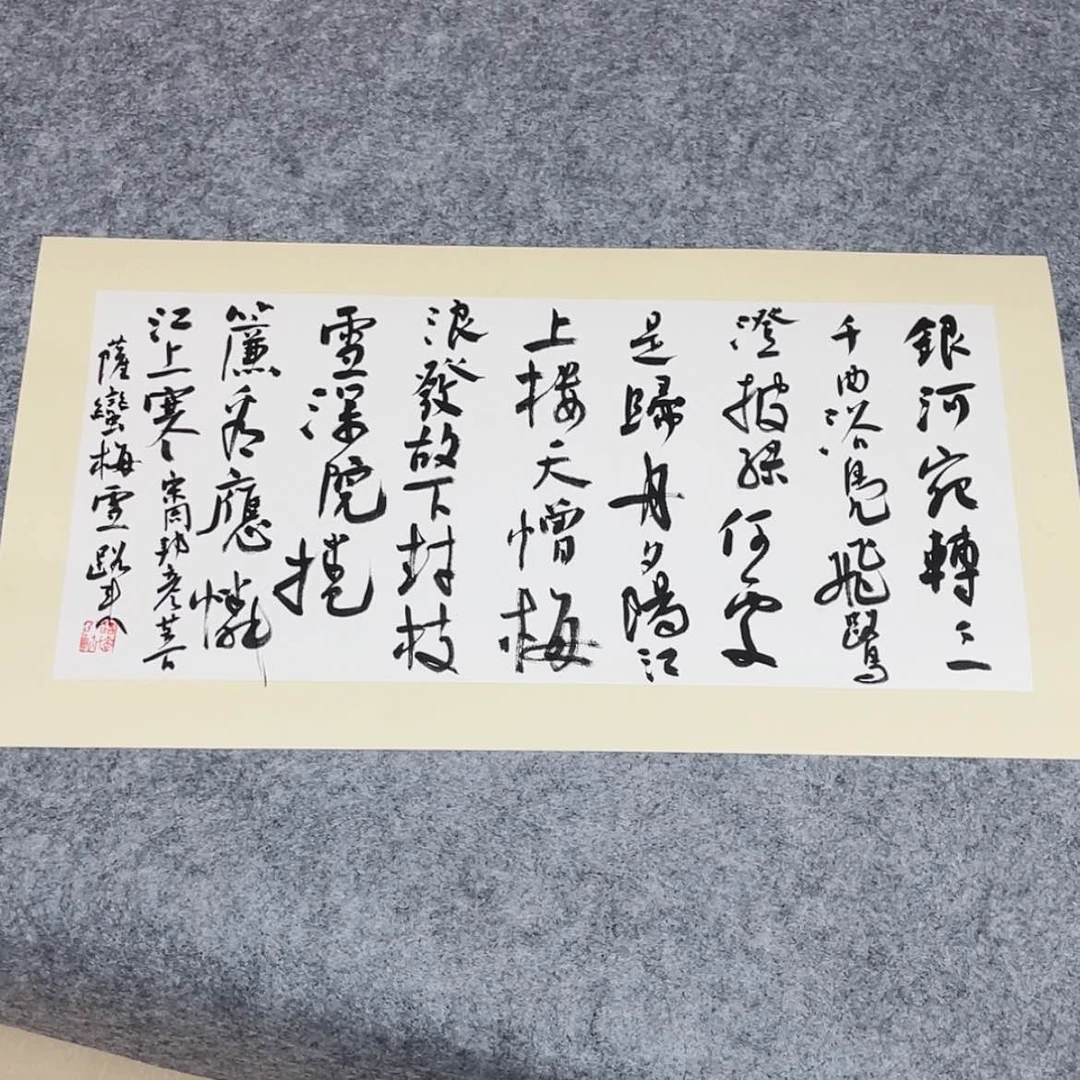 銀河宛轉三
千曲浴鳧飛鷺
澄波綠何處
是歸舟夕陽江
上楼天憎梅
浪發故下封枝
雪深院捲
簾看應憐
江上寒 宋周邦彦菩
薩蠻梅雪